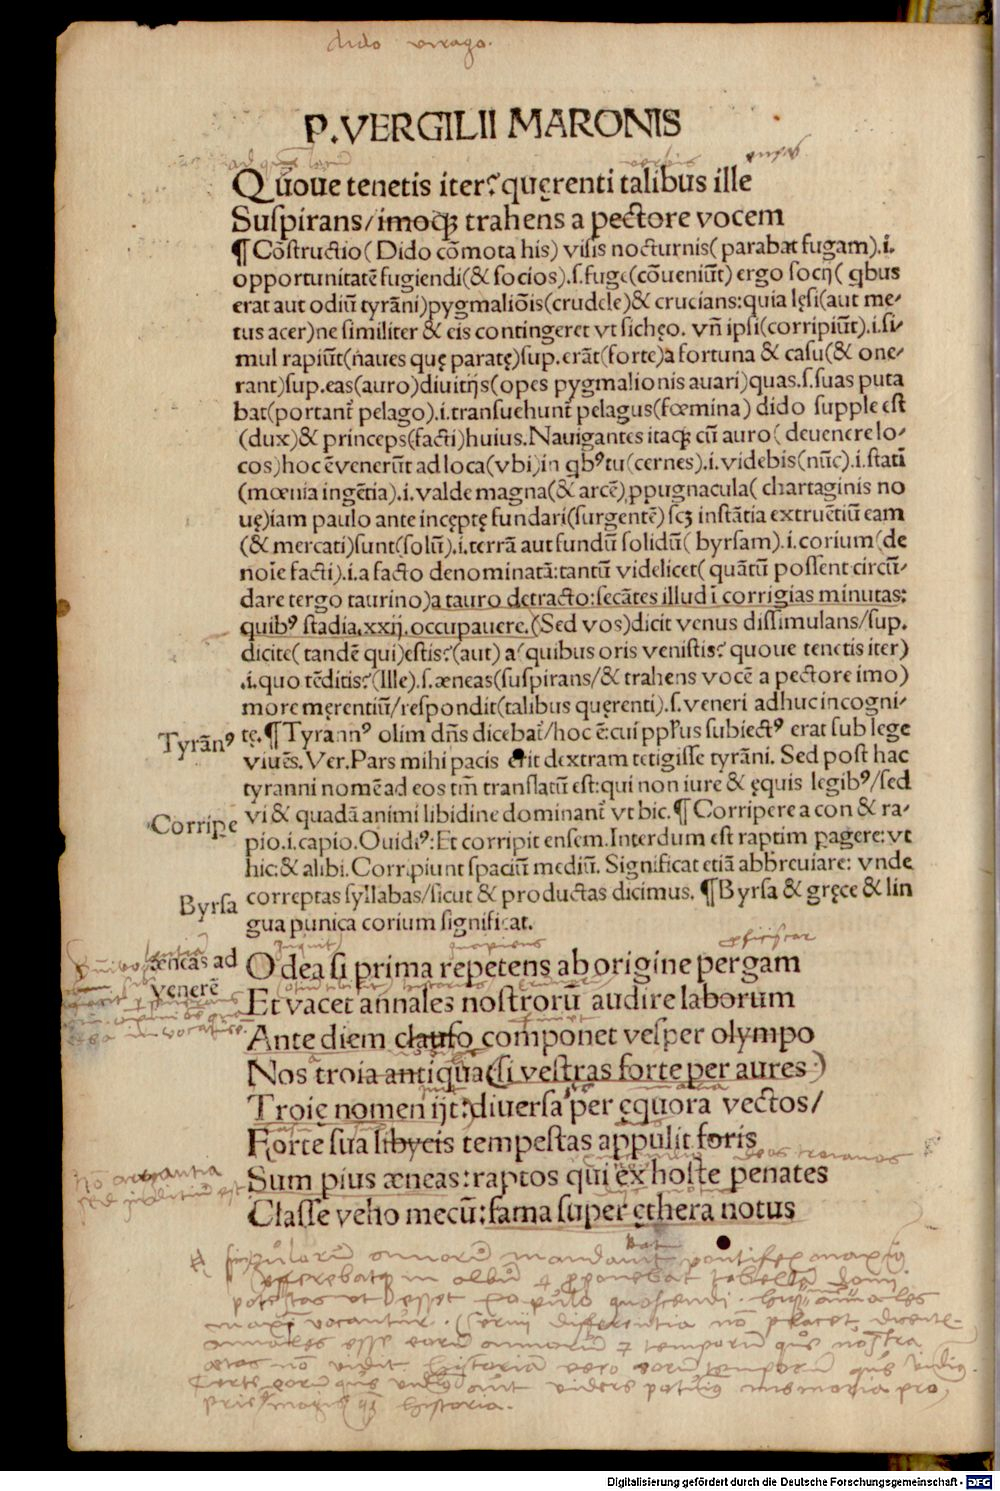 dido virago.
P. VERGILII MARONIS
Quoue tenetis iter? quęrenti talibus ille
Suspirans/imoqꝫ trahens a pectore vocem
¶ Cōstructio( Dido cōmota his) visis nocturnis( parabat fugam).i.
opportunitatē fugiendi(& socios).s.fugę(cōueniūt) ergo socij( qbus
erat aut odiū tyrāni)pygmaliōis(crudele)& crucians:quia lęsi(aut me/
tus acer)ne similiter & eis contingeret vt sichęo. vn̄ ipsi(corripiūt).i.si/
mul rapiūt(naues quę paratę)sup.erāt(forte)a fortuna & casu(& one/
rant)sup.eas(auro)diuitijs(opes pygmalionis auari)quas.s.suas puta
bat(portant̄ pelago).i.transuehunt̄ pelagus(fœmina) dido supple est
(dux)& princeps(facti)huius.Nauigantes itaqꝫ cū auro( deuenere lo/
cos)hoc ē venerūt ad loca(vbi)in qbꝰ tu(cernes).i.videbis(nūc).i.stati
(mœnia ingētia).i.valde magna(& arcē)ꝓpugnacula( chartaginis no
uę)iam paulo ante incęptę fundari(surgentē) scꝫ instātia extruētiū eam
(& mercati)sunt(solū).i.terrā aut fundū solidū( byrsam).i.corium(de
noīe facti).i.a facto denominatā:tantū videlicet( quātū possent circū/
dare tergo taurino)a tauro detracto:secātes illud ī corrigias minutas:
quibꝰ stadia.xxij.occupauere.(Sed vos)dicit venus dissimulans/sup.
dicite( tandē qui)estis?(aut) a(quibus oris venistis? quoue tenetis iter)
.i.quo tēditis?(Ille).s.æneas(suspirans/& trahens vocē a pectore imo)
more męrentiū/respondit(talibus quęrenti).s.veneri adhuc incogni/
Tyrānꝰ
tę.¶ Tyrannꝰ olim dn̄s dicebat̄/hoc ē:cui pp̄lus subiectꝰ erat sub lege
viuēs.Ver.Pars mihi pacis erit dextram tetigisse tyrāni. Sed post hac
tyranni nomē ad eos tm̄ translatū est:qui non iure & ęquis legibꝰ/sed
Corripe
vi & quadā animi libidine dominant̄ vt hic.¶ Corripere a con & ra-
pio.i.capio.Ouidiꝰ:Et corripit ensem.Interdum est raptim pagere:vt
hic:& alibi.Corripiunt spaciū mediū. Significat etiā abbreuiare: vnde
Byrsa
correptas syllabas/sicut & productas dicimus. ¶Byrsa & gręce & lin
gua punica corium significat.
æneas ad
venerē
O dea si prima repetens ab origine pergam
Et vacet annales nostrorū audire laborum
Ante diem clauso componet vesper olympo
Nos troia antiqua(si vestras forte per aures )
Troię nomen ijt:)diuersa per ęquora vectos/
Forte sua libycis tempestas appulit foris
Sum pius æneas:raptos qui ex hoste penates
Classe veho mecū:fama super ęthera notus
Nō arrogantia
sed inditiū est
singulorū annorū mandauit pontifex maxiꝰ
efferebatqꝫ in albū et proponebat tabellā domi
potestas ut esset populo gnoscendi. hiꝗ annales
maxi vocantur. Seruij differentia nō placet, dicentis
annales esse eorū annorū et temporū quos nostra
ætas nō vidit. historiā vero eorū temporū quos vidimꝰ
Certe eorū quos vel vidit aut videre potuit memoria pro
prie magis historia.
Digitalisierung gefördert durch die Deutsche Forschungsgemeinschaft - DFG